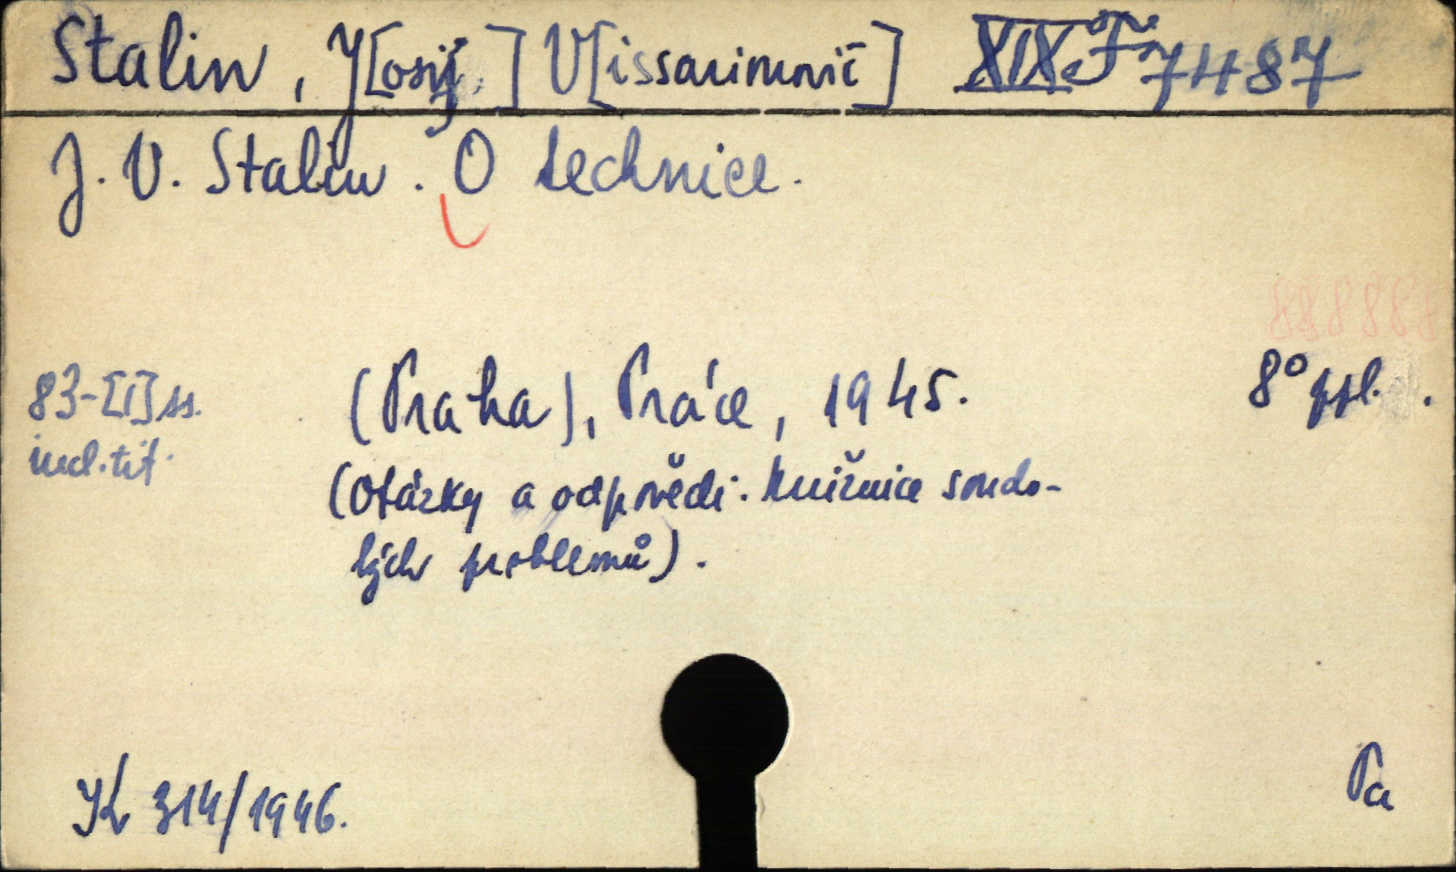 Stalin, J[osif] V[issarionovič] XIX F 7487
J. V. Stalin. O technice.
83-[1] ss. (Praha), Práce, 1945. 8° ppl.
incl. tit. (Otázky a odpovědi. Knižnice soudo-
bých problemů).
K 314/1946. Pa